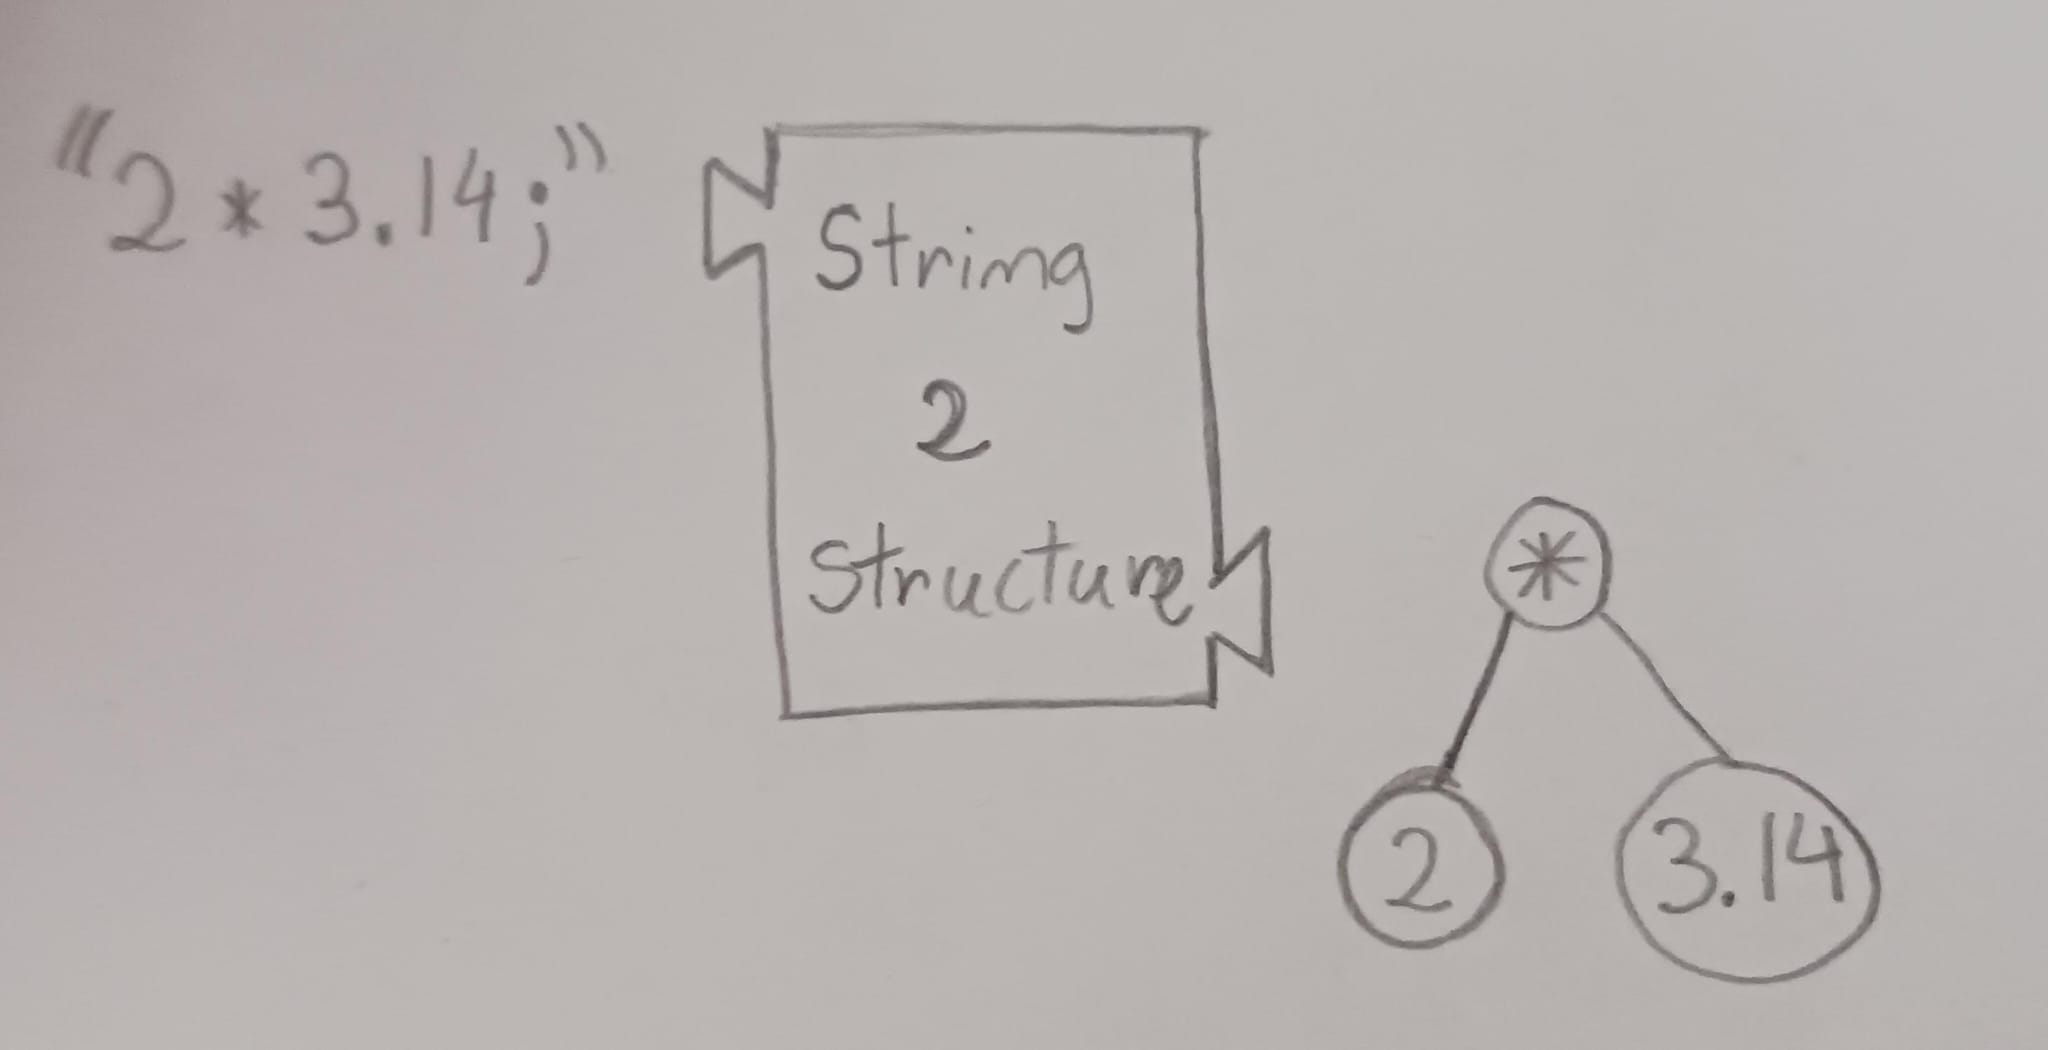 "2 * 3.14;"
String
2
Structure
*
2
3.14